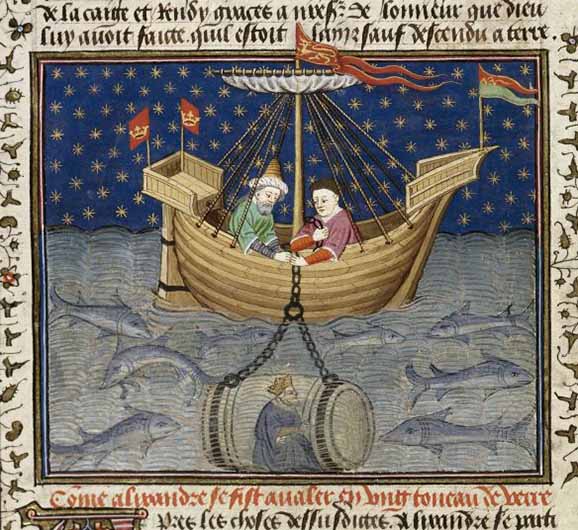 de la caige et Rendy graces a nre sr: de lonneur que dieu
luy auoit faicte. quil estoit sauf descendu a terre.
Cōme alixandre se fist aualer en vng toneau de verre
Pres les choses dessusdictes. Alixandre se parti